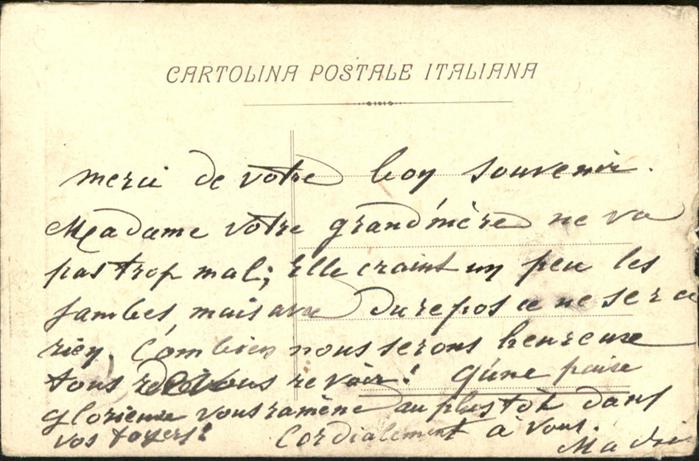 CARTOLINA POSTALE ITALIANA
merci de votre boy souvenir.
Madame votre grand'mère ne va
pas trop mal; Elle craint un peu les
jambes mais avec du repos ce ne sera
riey. Combien nous serons heureuse
tous de vous revoir! Qu'une paise
glorieuse vous ramène au plus tôt dans
vos foyers! Cordialement à vous.